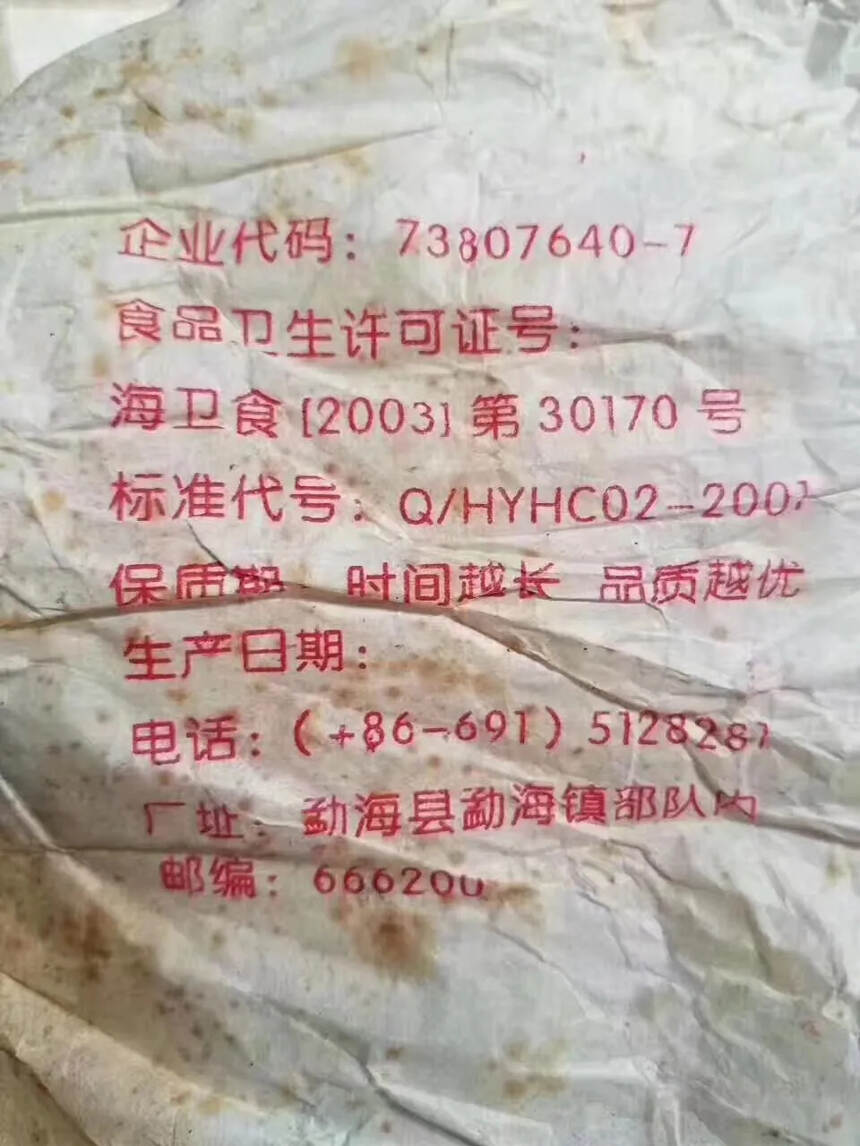 企业代码：73807640-7
食品卫生许可证号：
海卫食[2003]第30170号
标准代号：Q/HYHC02-200
保质期 时间越长 品质越优
生产日期：
电话：(+86-691) 512828
厂址：勐海县勐海镇部队内
邮编：666200